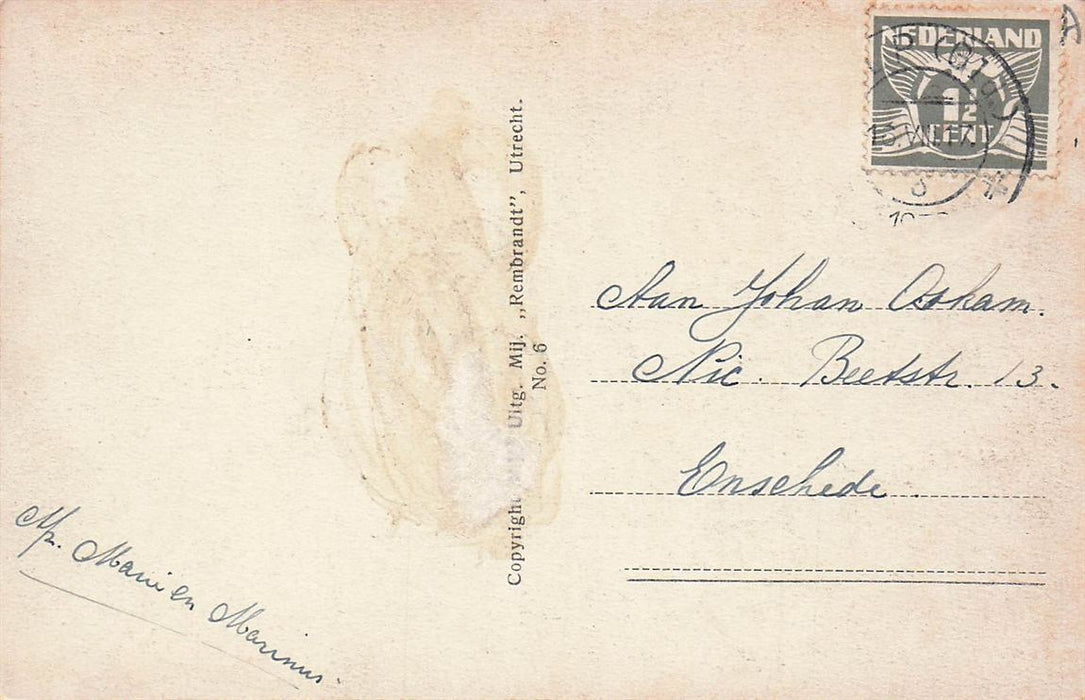 NEDERLAND
1½
CENT
Copyright Uitg. Mij. „Rembrandt”, Utrecht.
No. 6
Aan Johan Oskam.
Nic. Beetstr. 13.
Enschede.
Marinus.